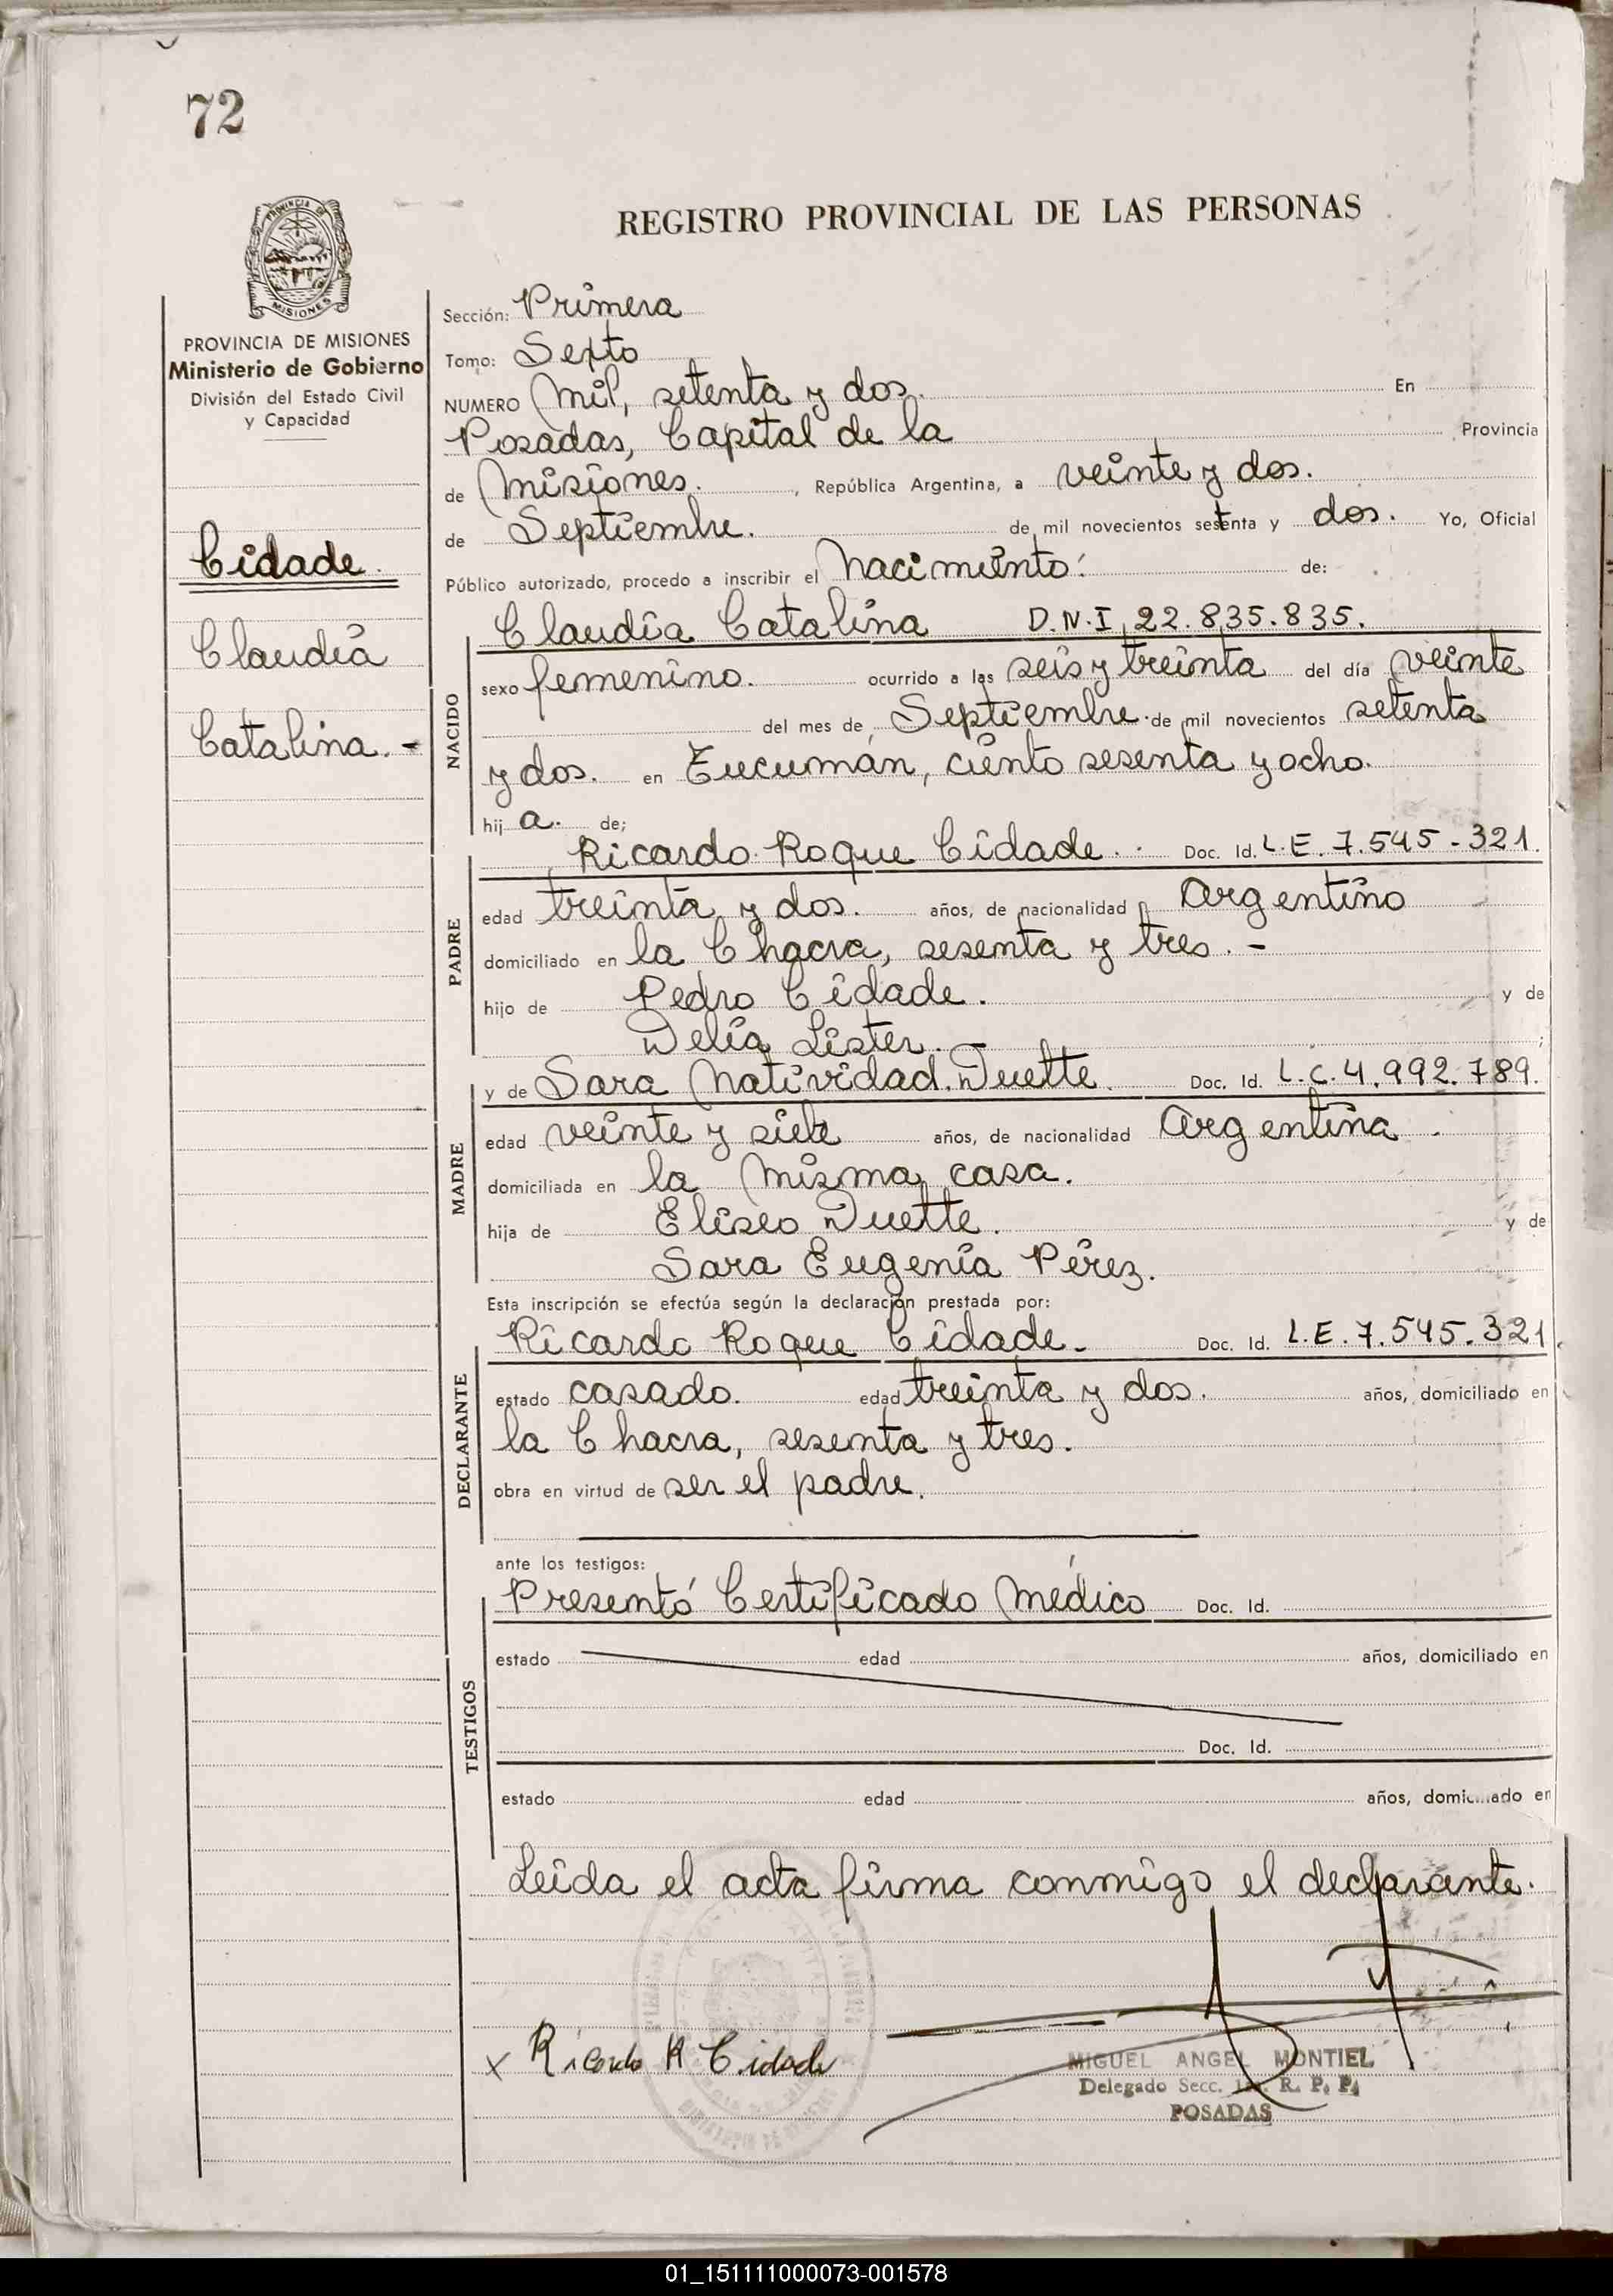 72
REGISTRO PROVINCIAL DE LAS PERSONAS
PROVINCIA DE
MISIONES
PROVINCIA DE MISIONES
Ministerio de Gobierno
División del Estado Civil
y Capacidad
Cidade.
Claudia
Catalina.-
Sección: Primera
Tomo: Sexto
NUMERO Mil, setenta y dos. En
Posadas, Capital de la Provincia
de Misiones. , República Argentina, a veinte y dos.
de Septiembre. de mil novecientos setenta y dos. Yo, Oficial
Público autorizado, procedo a inscribir el Nacimiento: de:
Claudia Catalina D.N.I. 22.835.835.
NACIDO
sexo femenino. ocurrido a las seis y treinta del día veinte
del mes de Septiembre. de mil novecientos setenta
y dos. en Tucumán, ciento sesenta y ocho.
hij a. de;
Ricardo Roque Cidade.. Doc. Id. L.E. 7.545-321.
PADRE
edad treinta y dos. años, de nacionalidad Argentino
domiciliado en la Chacra, sesenta y tres.-
hijo de Pedro Cidade. y de
Delia Lister. ;
y de Sara Natividad Duette. Doc. Id. L.C. 4.992.789.
MADRE
edad veinte y siete años, de nacionalidad Argentina.
domiciliada en la misma casa.
hija de Eliseo Duette. y de
Sara Eugenia Pérez.
Esta inscripción se efectúa según la declaración prestada por:
Ricardo Roque Cidade. Doc. Id. L.E. 7.545.321.
DECLARANTE
estado casado. edad treinta y dos. años, domiciliado en
la Chacra, sesenta y tres.
obra en virtud de ser el padre.
ante los testigos:
Presentó Certificado Médico Doc. Id.
TESTIGOS
estado edad años, domiciliado en
Doc. Id.
estado edad años, domiciliado en
Leida el acta firma conmigo el declarante.
x Ricardo R Cidade
MIGUEL ANGEL MONTIEL
Delegado Secc. 1ra. R. P. P.
POSADAS
01_151111000073-001578